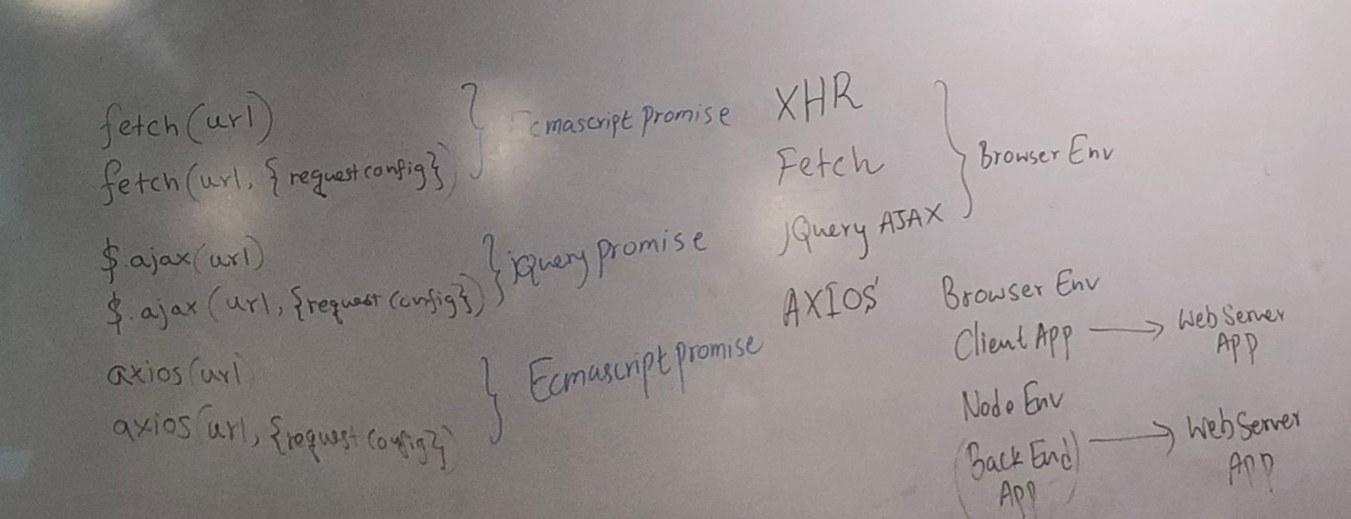 fetch(url)
fetch(url, {requestconfig})
Ecmascript promise
$.ajax(url)
$.ajax(url, {request config})
jquery promise
axios(url)
axios(url, {request config})
Ecmascript promise
XHR
Fetch
jQuery AJAX
Browser Env
AXIOS
Browser Env
Client App → Web Server
APP
Node Env
(Back End) → Web Server
App
APP